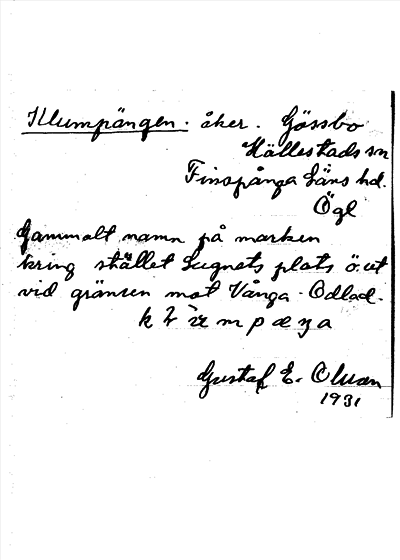 Klumpängen. åker. Gössbo
Hällestads sn
Finspånga Läns hd.
Ögl
Gammalt namn på marken
kring stället Lugnets plats ö. ut
vid gränsen mot Vånga. Odlad.
Gustaf E. Olsson
1931